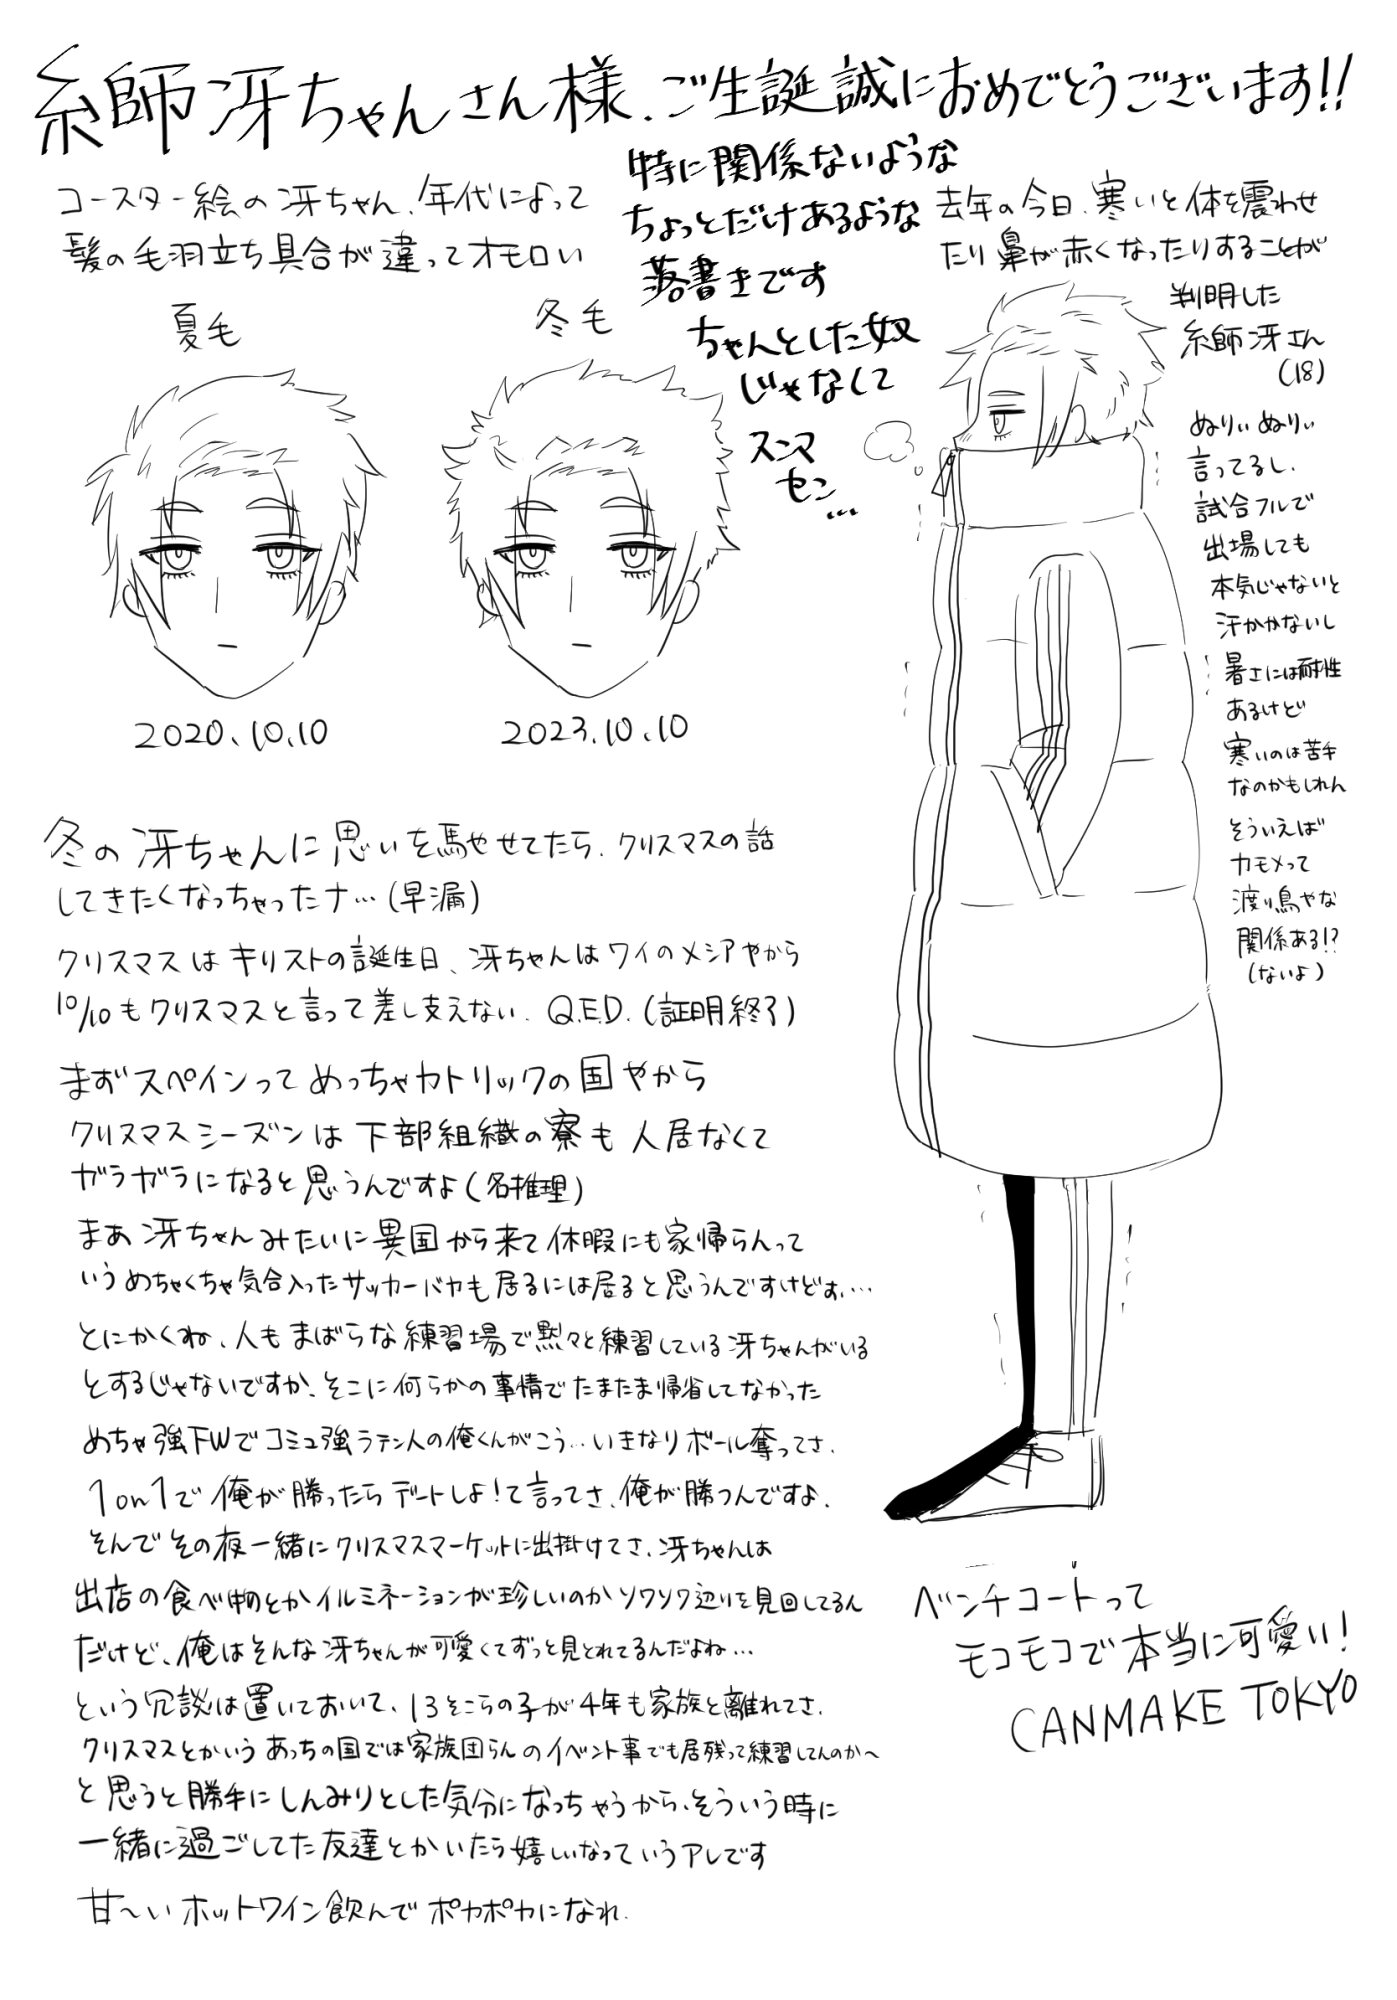 糸師冴ちゃんさん様、ご生誕誠におめでとうございます!!
特に関係ないような
ちょっとだけあるような
落書きです
ちゃんとした奴
じゃなくて
スンマ
セン…
コースター絵の冴ちゃん、年代によって
髪の毛羽立ち具合が違ってオモロい
夏毛
冬毛
2020.10.10
2023.10.10
去年の今日、寒いと体を震わせ
たり鼻が赤くなったりすることが
判明した
糸師冴さん
(18)
ぬりぃぬりぃ
言ってるし、
試合フルで
出場しても
本気じゃないと
汗かかないし
暑さには耐性
あるけど
寒いのは苦手
なのかもしれん
そういえば
カモメって
渡り鳥やな
関係ある!?
(ないよ)
冬の冴ちゃんに思いを馬やせてたら、クリスマスの話
してきたくなっちゃったナ…(早漏)
クリスマスはキリストの誕生日、冴ちゃんはワイのメシアやから
10/10もクリスマスと言って差し支えない。Q.E.D.(証明終了)
まずスペインってめっちゃカトリックの国やから
クリスマスシーズンは下部組織の寮も人居なくて
ガラガラになると思うんですよ(名推理)
まあ冴ちゃんみたいに異国から来て休暇にも家帰らんって
いうめちゃくちゃ気合入ったサッカーバカも居るには居ると思うんですけどぉ…
とにかくね、人もまばらな練習場で黙々と練習している冴ちゃんがいる
とするじゃないですか、そこに何らかの事情でたまたま帰省してなかった
めちゃ強FWでコミュ強ラテン人の俺くんがこう…いきなりボール奪ってさ、
1on1で俺が勝ったらデートしよ!て言ってさ、俺が勝つんですよ、
そんでその夜一緒にクリスマスマーケットに出掛けてさ、冴ちゃんは
出店の食べ物とかイルミネーションが珍しいのかソワソワ辺りを見回してるん
だけど、俺はそんな冴ちゃんが可愛くてずっと見とれてるんだよね…
という冗談は置いておいて、13そこらの子が4年も家族と離れてさ、
クリスマスとかいうあっちの国では家族団らんのイベント事でも居残って練習してんのか〜
と思うと勝手にしんみりとした気分になっちゃうから、そういう時に
一緒に過ごしてた友達とかいたら嬉しいなっていうアレです
甘〜いホットワイン飲んでポカポカになれ。
ベンチコートって
モコモコで本当に可愛い!
CANMAKE TOKYO